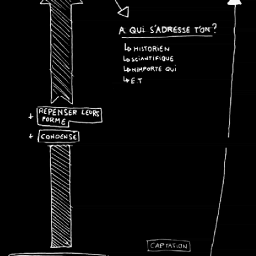 A QUI S'ADRESSE T'ON?
↳ HISTORIEN
↳ SCIANTIFIQUE
↳ N'IMPORTE QUI
↳ E T
+ REPENSER LEURS
FORME
+ CONDENSE
CAPTATION